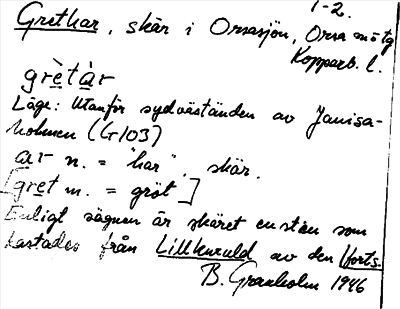 1-2.
Grethar, skär i Orsasjön, Orsa mötg
Kopparb. l.
grètàr
Läge: Utanför sydväständen av Janisa-
holmen (G103)
ar n. = "har", skär.
[gret m. = gröt]
Enligt sägnen är skäret en sten som
kastades från Lillkuruld av den (forts.
B. Granholm 1946